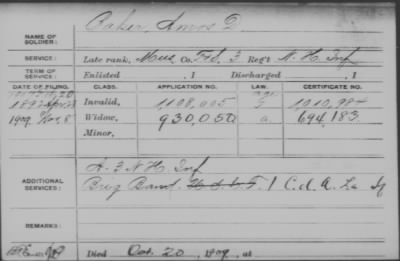 Baker, Amos D
NAME OF SOLDIER:
SERVICE: Late rank, Mus, Co. F&S, 3 Reg't N.H. Inf
TERM OF SERVICE: Enlisted , 1 Discharged , 1
DATE OF FILING. CLASS. APPLICATION NO. LAW. CERTIFICATE NO.
1892 Invalid, 1,108,005 G 1,010,984
1909 Nov. 8 Widow, 930,050 a. 694,183
Minor,
ADDITIONAL SERVICES: A. 3 N.H. Inf
Brig Band 1 C.d.A.
REMARKS:
Died Oct. 20, 1909, at